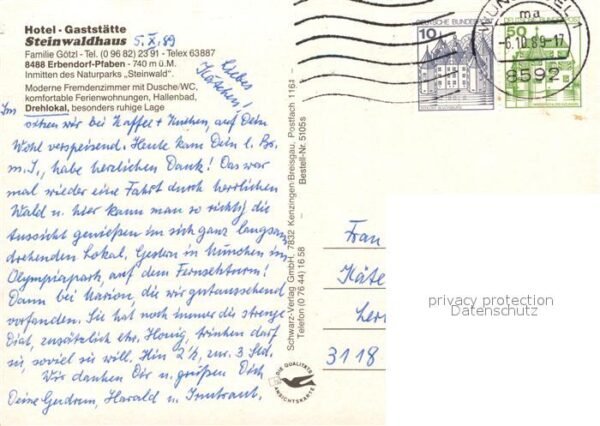 Hotel - Gaststätte
Steinwaldhaus 5.X.89
Familie Götzl - Tel. (0 96 82) 23 91 - Telex 63887
8488 Erbendorf-Pfaben - 740 m ü.M.
Inmitten des Naturparks „Steinwald".
Moderne Fremdenzimmer mit Dusche/WC,
komfortable Ferienwohnungen, Hallenbad,
Drehlokal, besonders ruhige Lage
Liebes
Kätchen!
Im
sitzen wir bei Kaffee + Kuchen, auf Dein
Wohl verspeisend. Heute kam Dein l. Br.
m. I., habe herzlichen Dank! Das war
mal wieder eine Fahrt durch herrlichen
Wald u. hier kann man so richtig die
Aussicht genießen im sich ganz langsam
drehenden Lokal. Gestern in München im
Olympiapark, auf dem Fernsehturm!
Dann bei Marion, die wir gutaussehend
vorfanden. Sie hat noch immer die strenge
Diät, zusätzlich etw. Honig, trinken darf
sie, soviel sie will. Hin 2½, zur. 3 Std.
Wir danken Dir u. grüßen Dich
Deine Gerdrun, Harald u. Irmtraut.
Schwarz-Verlag GmbH. 7832 Kenzingen/Breisgau, Postfach 1164 - Bestell-Nr. 5105s
Telefon (0 76 44) 16 58
DIE QUALITÄTS
ANSICHTSKARTE
DEUTSCHE BUNDESPOST
10
DEUTSCHE BUNDESPOST
50
-6.10.89-17
8592
Frau
Käte
3118
privacy protection
Datenschutz